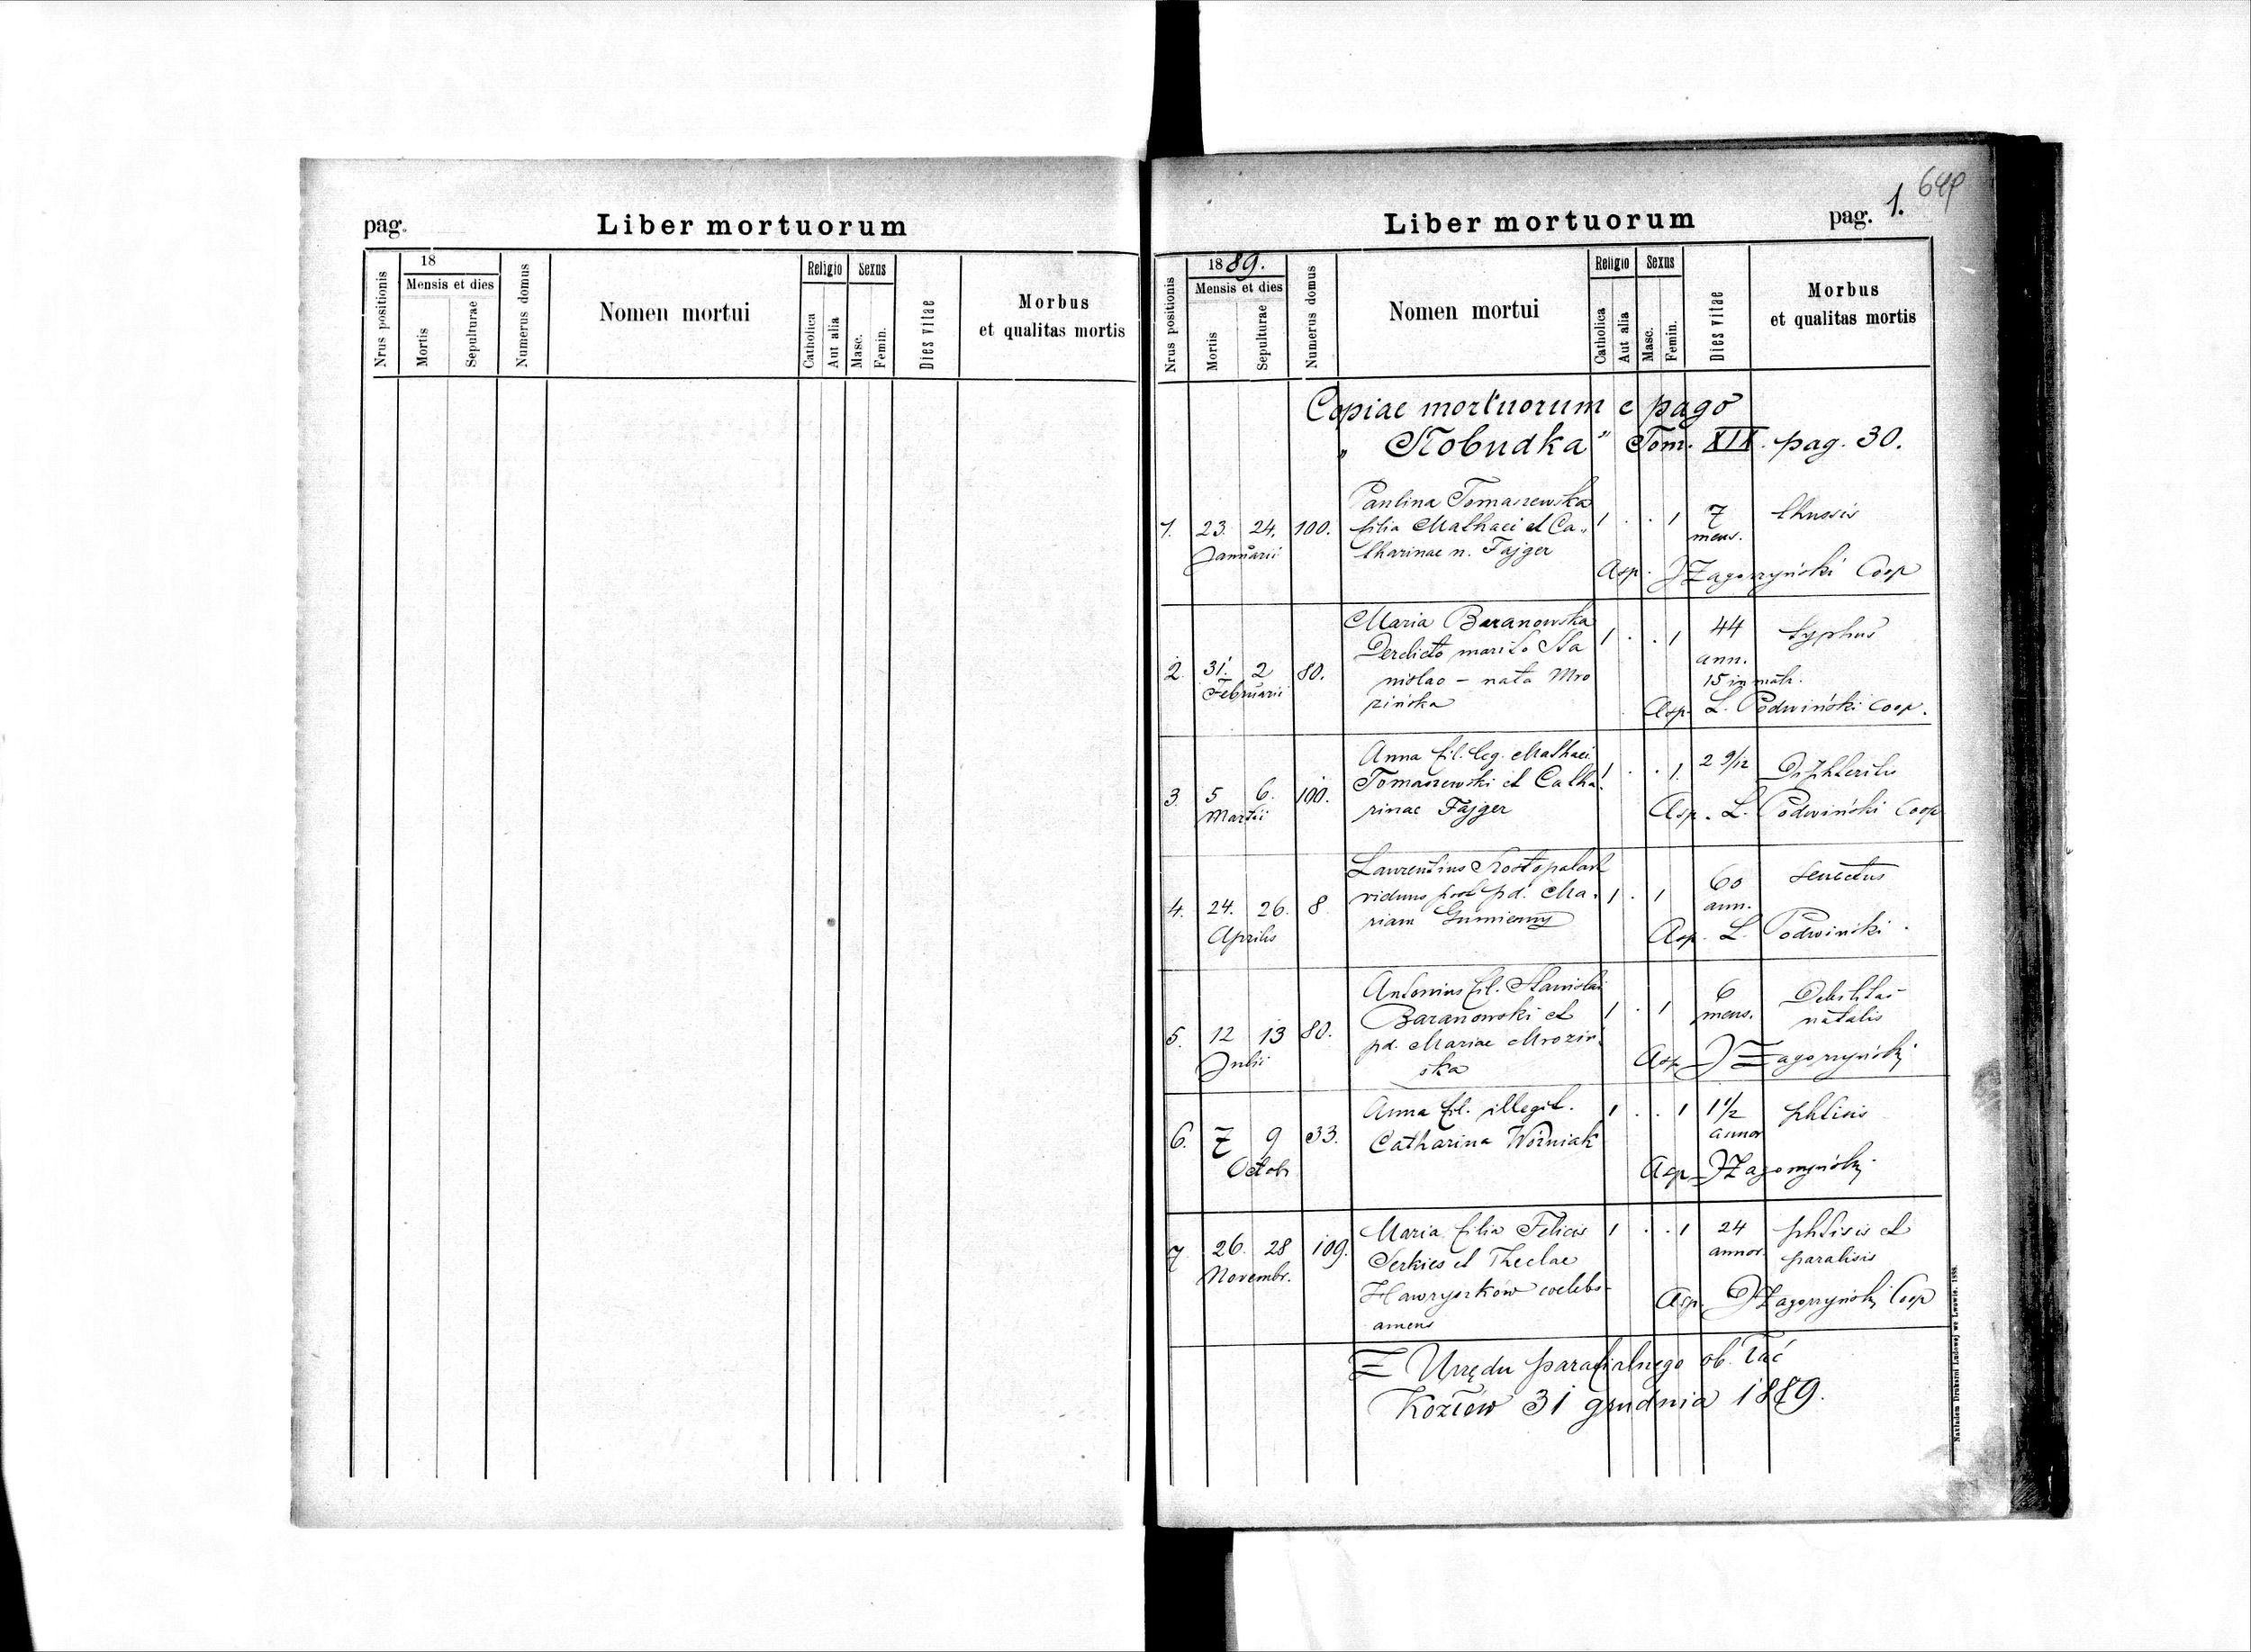 pag.
Liber mortuorum
Nrus positionis
18
Mensis et dies
Mortis
Sepulturae
Numerus domus
Nomen mortui
Religio
Catholica
Aut alia
Sexus
Masc.
Femin.
Dies vitae
Morbus
et qualitas mortis
Liber mortuorum
pag. 1.
Nrus positionis
1889.
Mensis et dies
Mortis
Sepulturae
Numerus domus
Nomen mortui
Religio
Catholica
Aut alia
Sexus
Masc.
Femin.
Dies vitae
Morbus
et qualitas mortis
Copiae mortuorum e pago
„ Słobudka" Tom. XIX. pag. 30.
1. 23. 24. Januarii 100.
Paulina Tomaszewska
filia Mathaei et Ca-
tharinae n. Fajger
1 . . 1 7 mens. thussis
Asp. J Zagorzyński Coop
2. 31. 2 Februarii 80.
Maria Baranowska
Derelicto marito Sta
nislao - nata Mro
zińska
1 . . 1 44 ann. 15 in matr. typhus
Asp. L. Podwiński Coop.
3. 5 6. Martii 100.
Anna fil. leg. Mathaei
Tomaszewski et Catha.
rinae Fajger
1 . . 1. 2 9/12 Diphteritis
Asp. L. Podwiński Coop
4. 24. 26. Aprilis 8
Laurentius
viduus post pd. Ma.
riam Gumienny
1 . 1 60 ann. Senectus
Asp. L. Podwiński.
5. 12 13 Julii 80.
Antonius fil. Stanislai
Baranowski et
pd. Mariae Mroziń
ska
1 . 1 6 mens. Debilitas
natalis
Asp J Zagorzyński
6. 7 9 Octobr 33.
Anna fil. illegit.
Catharina Woźniak
1 . . 1 1 1/2 annor phtisis
Asp J Zagorzyński
7. 26. 28 Novembr. 109.
Maria filia Felicis
Serkies et Theclae
Hawryszków coelebs
amens
1 . . 1 24 annor. phtisis et
paralisis
Asp J Zagorzyński Coop
Z Urzędu parafialnego ob. łać
Kozłów 31 grudnia 1889.
Nakładem Drukarni Ludowej we Lwowie. 1888.